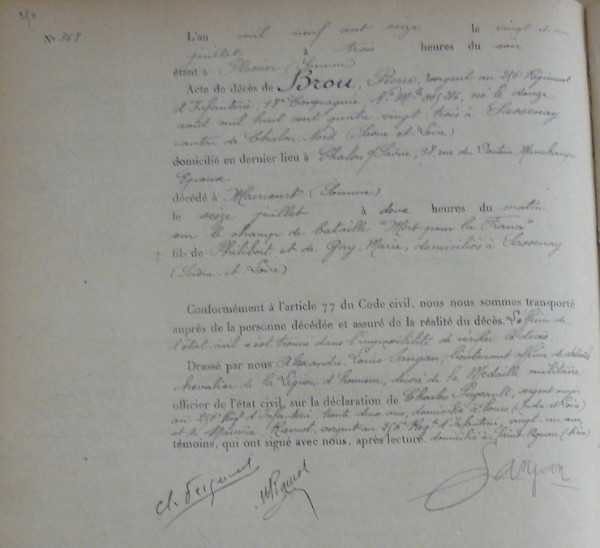 N° 368
L'an mil neuf cent seize le vingt et un
juillet à trois heures du soir
étant à (Somme)
Acte de décès de Brou, Pierre, sergent au 256 Régiment
d'Infanterie, 18e Compagnie, N° Mle né le douze
août mil huit cent quatre vingt trois à Sassenay
canton de Chalon Nord (Saône et Loire)
domicilié en dernier lieu à Chalon s/Saône, rue du Docteur
Epoux
décédé à Maucourt (Somme)
le seize juillet à heures du matin
sur le champ de bataille "Mort pour la France"
fils de Philibert et de Guy, Marie, domiciliés à Sassenay
(Saône et Loire)
Conformément à l'article 77 du Code civil, nous nous sommes transporté
auprès de la personne décédée et assuré de la réalité du décès. L'officier de
l'état civil s'est trouvé dans l'impossibilité de vérifier le décès
Dressé par nous Alexandre, Louis lieutenant officier de détails
chevalier de la Légion d'honneur, décoré de la Médaille militaire
officier de l'état civil, sur la déclaration de Charles sergent
au 256 Régt d'Infanterie, trente deux ans, domicilié à Tours (Indre et Loire)
et de Maurice sergent au 256 Régt d'Infanterie, vingt un ans,
témoins, qui ont signé avec nous, après lecture. domicilié à Saint